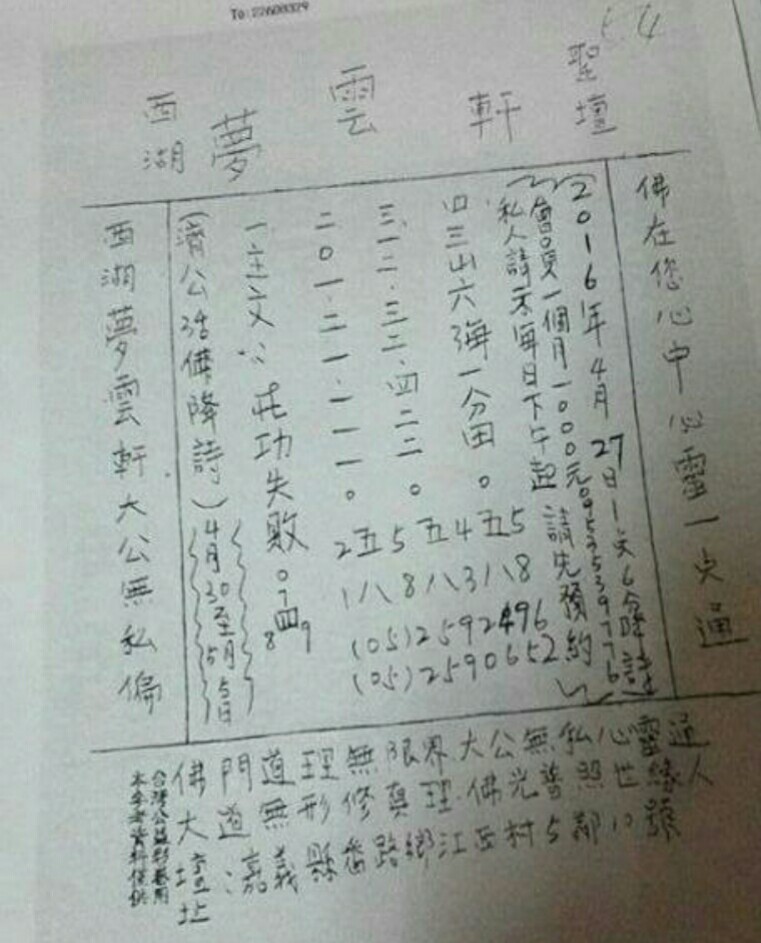 To:22600329
西湖夢雲軒聖壇
佛在您心中心靈一点通
2016年4月27日1支6分降詩
會員一個月一000元。0953539776
私人請示每日下午起 請先預約
四三山六海一分田。五518
三一二.三二.四二二。
二0一.二一.一一一。
一主文:花功失敗。
(濟公活佛降詩)
4月30至5月5日
西湖夢雲軒大公無私偏
2五5五4五5
1八8八3八8
(05)2592496
(05)2590652
佛門道理無限界.大公無私心靈通
大道無形修真理.佛光普照世緣人
壇址:嘉義縣番路鄉江西村5鄰10號
台灣公益彩券用
本参考資料提供